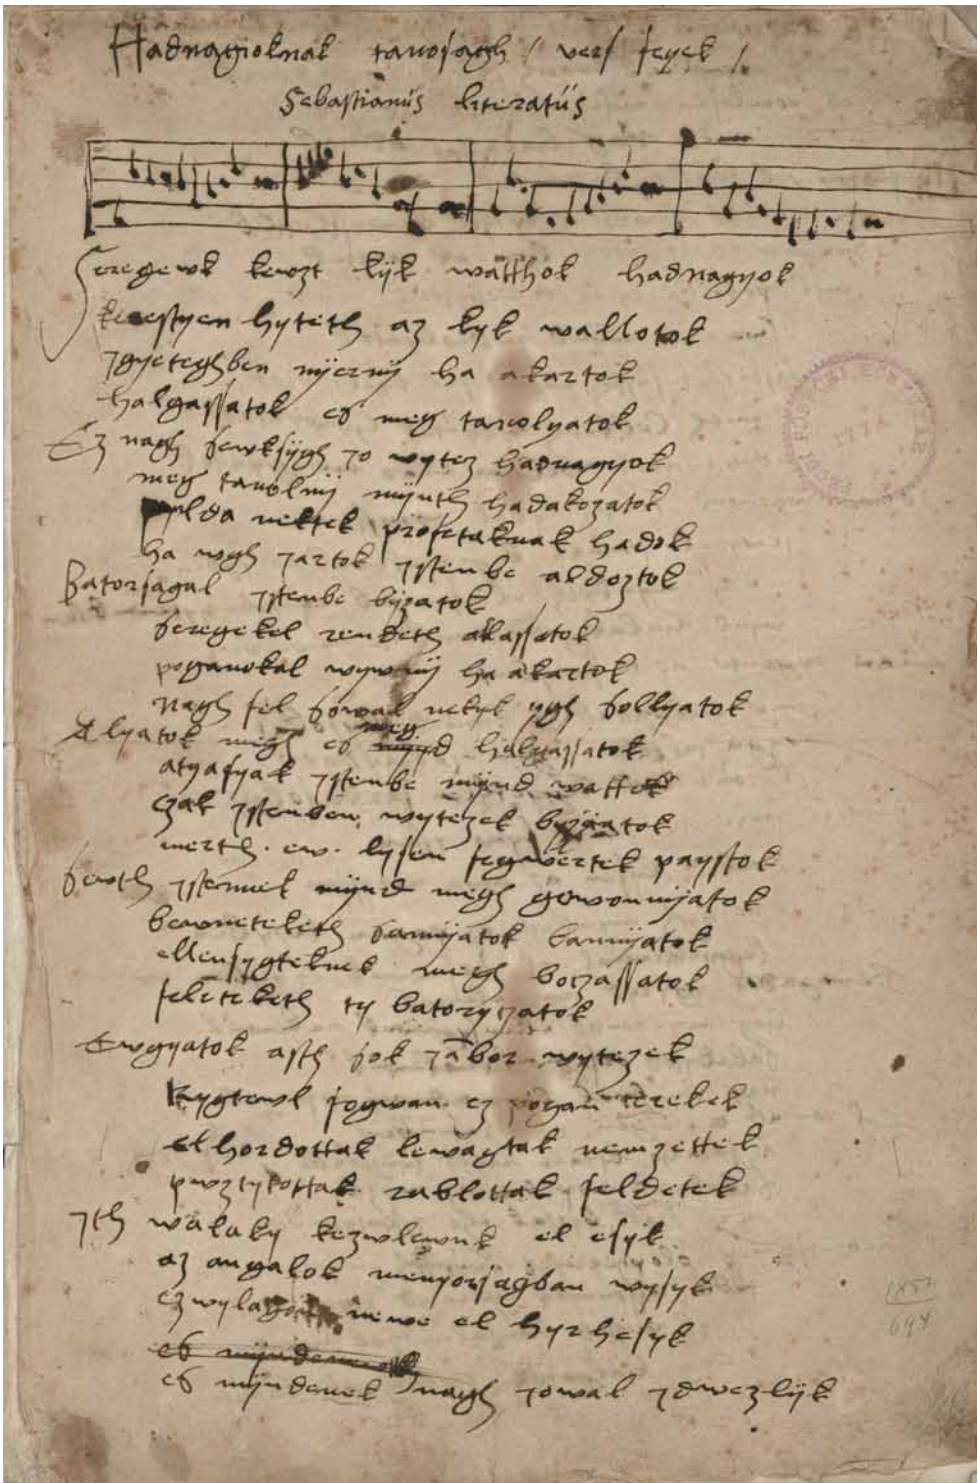 Hadnagioknak tanosagh / vers feyek /
Sebastianus literatus
Seregewk kewzt kyk watthok hadnagyok
kerestyen hyteth az kyk wallotok
jgyeteghben nyerny ha akartok
halgassatok es meg tanolyatok
Ez nagh sewksygh jo wytez hadnagyok
meg tanolny mynth hadakozatok
pylda nektek profetaknak hadok
ha wgh jartok jstenbe aldoztok
Batorsagal jstenbe byzatok
seregekel rendeth allassatok
poganokal wywny ha akartok
nagh fel sowal nekyk ygh sollyatok
Alyatok megh es meg halgassatok
atyafyak jstenbe mynd wattok
czak jstenben wytezek byzatok
merth ew lysen fegwertek paystok
sewth jstennek mynd megh gowonnyatok
bewneteketh sannyatok bannyatok
ellensygteknek megh boczassatok
feleteketh ty batoryczatok
Ewgyatok asth sok jambor wytezek
kygtewl fogwan ez pogan terekek
el hordottak lewagtak nemzettek
pwztytottak rablottak feldetek
jth walaky kezwlewnk el esyk
az angalok menyorsagban wysyk
ez wylagon newe el hyrhesyk
es myndenek
es myndenek nagh jowal jdwezlyk